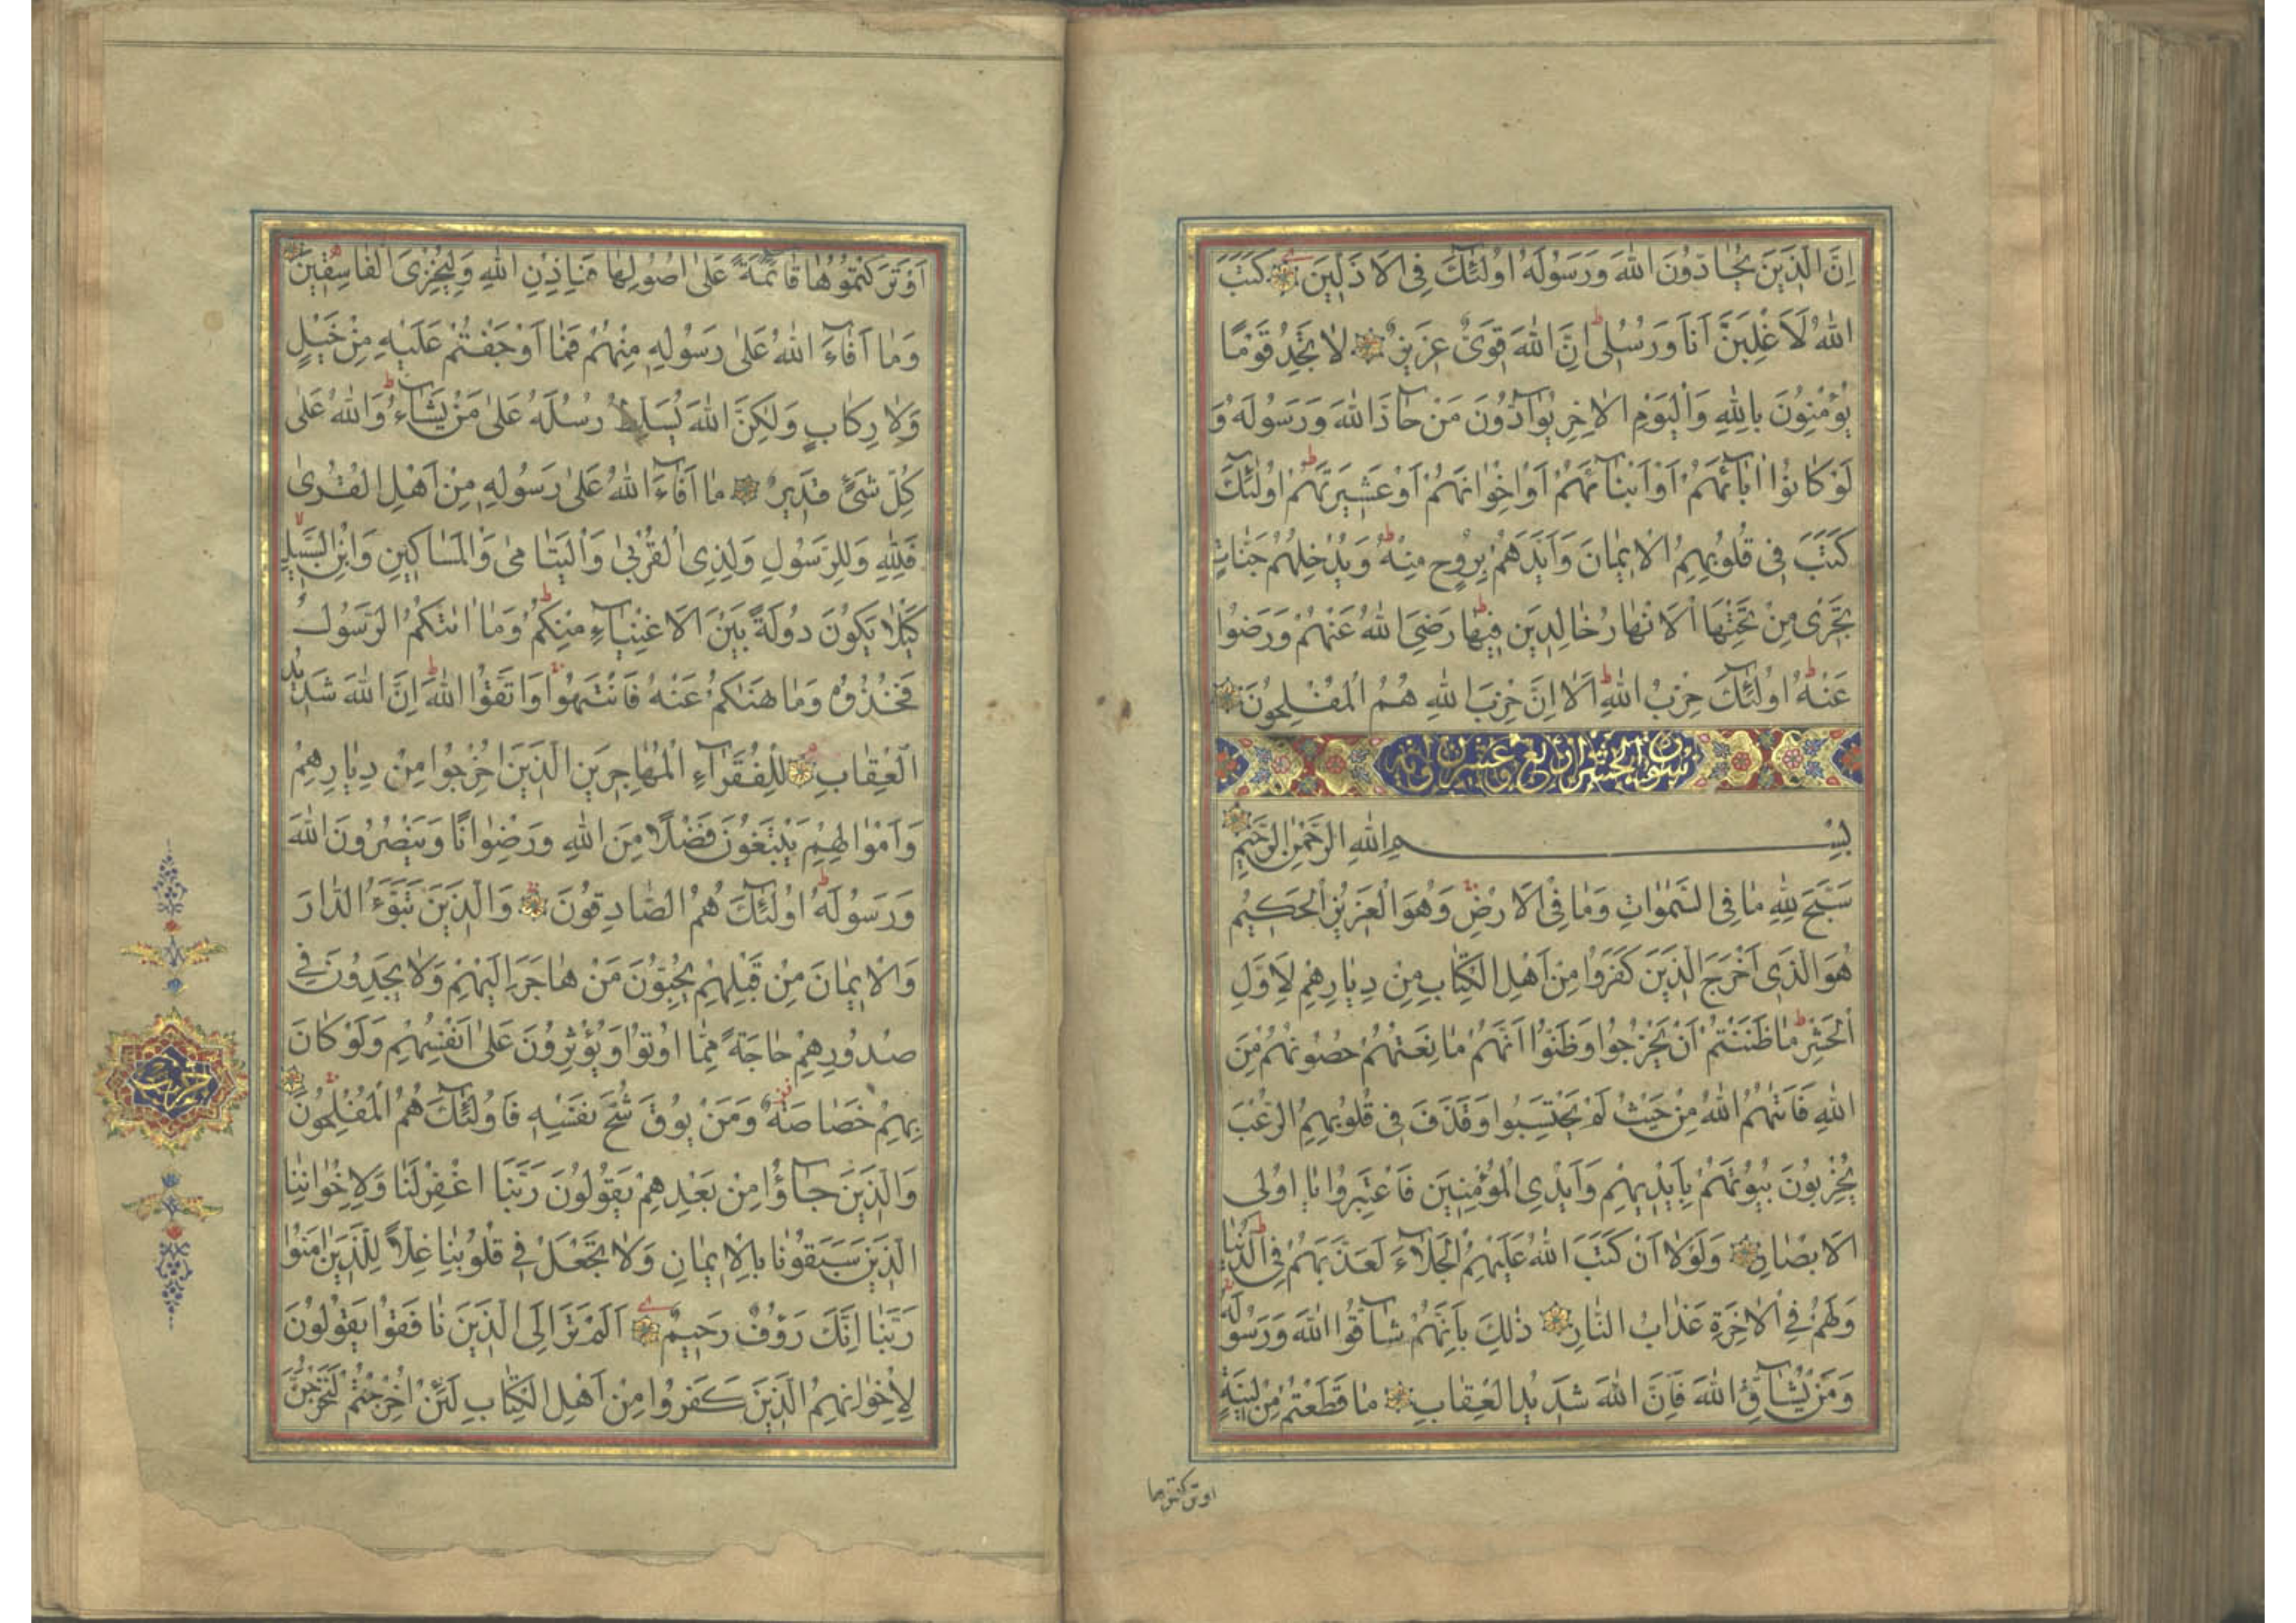 اِنَّ الَّذِينَ يُحَادُّونَ اللهَ وَرَسُولَهُ اُولٰئِكَ فِى الْاَذَلِّينَ كَتَبَ
اللهُ لَاَغْلِبَنَّ اَنَا وَرُسُلِى اِنَّ اللهَ قَوِىٌّ عَزِيزٌ لَا تَجِدُ قَوْمًا
يُؤْمِنُونَ بِاللهِ وَالْيَوْمِ الْاٰخِرِ يُوَادُّونَ مَنْ حَادَّ اللهَ وَرَسُولَهُ وَ
لَوْ كَانُوا اٰبَائَهُمْ اَوْ اَبْنَائَهُمْ اَوْ اِخْوَانَهُمْ اَوْ عَشِيرَتَهُمْ اُولٰئِكَ
كَتَبَ فِى قُلُوبِهِمُ الْاِيمَانَ وَاَيَّدَهُمْ بِرُوحٍ مِنْهُ وَيُدْخِلُهُمْ جَنَّاتٍ
تَجْرِى مِنْ تَحْتِهَا الْاَنْهَارُ خَالِدِينَ فِيهَا رَضِىَ اللهُ عَنْهُمْ وَرَضُوا
عَنْهُ اُولٰئِكَ حِزْبُ اللهِ اَلَا اِنَّ حِزْبَ اللهِ هُمُ الْمُفْلِحُونَ
سورة الحشر اربع وعشرون اية
بِسْمِ اللهِ الرَّحْمٰنِ الرَّحِيمِ
سَبَّحَ لِلّٰهِ مَا فِى السَّمٰوَاتِ وَمَا فِى الْاَرْضِ وَهُوَ الْعَزِيزُ الْحَكِيمُ
هُوَ الَّذِى اَخْرَجَ الَّذِينَ كَفَرُوا مِنْ اَهْلِ الْكِتَابِ مِنْ دِيَارِهِمْ لِاَوَّلِ
الْحَشْرِ مَا ظَنَنْتُمْ اَنْ يَخْرُجُوا وَظَنُّوا اَنَّهُمْ مَانِعَتُهُمْ حُصُونُهُمْ مِنَ
اللهِ فَاَتٰهُمُ اللهُ مِنْ حَيْثُ لَمْ يَحْتَسِبُوا وَقَذَفَ فِى قُلُوبِهِمُ الرُّعْبَ
يُخْرِبُونَ بُيُوتَهُمْ بِاَيْدِيهِمْ وَاَيْدِى الْمُؤْمِنِينَ فَاعْتَبِرُوا يَا اُولِى
الْاَبْصَارِ وَلَوْلَا اَنْ كَتَبَ اللهُ عَلَيْهِمُ الْجَلَاءَ لَعَذَّبَهُمْ فِى الدُّنْيَا
وَلَهُمْ فِى الْاٰخِرَةِ عَذَابُ النَّارِ ذٰلِكَ بِاَنَّهُمْ شَاقُّوا اللهَ وَرَسُولَهُ
وَمَنْ يُشَاقِّ اللهَ فَاِنَّ اللهَ شَدِيدُ الْعِقَابِ مَا قَطَعْتُمْ مِنْ لِينَةٍ
او تركتموها
اَوْ تَرَكْتُمُوهَا قَائِمَةً عَلٰى اُصُولِهَا فَبِاِذْنِ اللهِ وَلِيُخْزِىَ الْفَاسِقِينَ
وَمَا اَفَاءَ اللهُ عَلٰى رَسُولِهِ مِنْهُمْ فَمَا اَوْجَفْتُمْ عَلَيْهِ مِنْ خَيْلٍ
وَلَا رِكَابٍ وَلٰكِنَّ اللهَ يُسَلِّطُ رُسُلَهُ عَلٰى مَنْ يَشَاءُ وَاللهُ عَلٰى
كُلِّ شَىْءٍ قَدِيرٌ مَا اَفَاءَ اللهُ عَلٰى رَسُولِهِ مِنْ اَهْلِ الْقُرٰى
فَلِلّٰهِ وَلِلرَّسُولِ وَلِذِى الْقُرْبٰى وَالْيَتَامٰى وَالْمَسَاكِينِ وَابْنِ السَّبِيلِ
كَيْلَا يَكُونَ دُولَةً بَيْنَ الْاَغْنِيَاءِ مِنْكُمْ وَمَا اٰتٰكُمُ الرَّسُولُ
فَخُذُوهُ وَمَا نَهٰكُمْ عَنْهُ فَانْتَهُوا وَاتَّقُوا اللهَ اِنَّ اللهَ شَدِيدُ
الْعِقَابِ لِلْفُقَرَاءِ الْمُهَاجِرِينَ الَّذِينَ اُخْرِجُوا مِنْ دِيَارِهِمْ
وَاَمْوَالِهِمْ يَبْتَغُونَ فَضْلًا مِنَ اللهِ وَرِضْوَانًا وَيَنْصُرُونَ اللهَ
وَرَسُولَهُ اُولٰئِكَ هُمُ الصَّادِقُونَ وَالَّذِينَ تَبَوَّءُ الدَّارَ
وَالْاِيمَانَ مِنْ قَبْلِهِمْ يُحِبُّونَ مَنْ هَاجَرَ اِلَيْهِمْ وَلَا يَجِدُونَ فِى
صُدُورِهِمْ حَاجَةً مِمَّا اُوتُوا وَيُؤْثِرُونَ عَلٰى اَنْفُسِهِمْ وَلَوْ كَانَ
بِهِمْ خَصَاصَةٌ وَمَنْ يُوقَ شُحَّ نَفْسِهِ فَاُولٰئِكَ هُمُ الْمُفْلِحُونَ
وَالَّذِينَ جَاؤُا مِنْ بَعْدِهِمْ يَقُولُونَ رَبَّنَا اغْفِرْ لَنَا وَلِاِخْوَانِنَا
الَّذِينَ سَبَقُونَا بِالْاِيمَانِ وَلَا تَجْعَلْ فِى قُلُوبِنَا غِلًّا لِلَّذِينَ اٰمَنُوا
رَبَّنَا اِنَّكَ رَؤُفٌ رَحِيمٌ اَلَمْ تَرَ اِلَى الَّذِينَ نَافَقُوا يَقُولُونَ
لِاِخْوَانِهِمُ الَّذِينَ كَفَرُوا مِنْ اَهْلِ الْكِتَابِ لَئِنْ اُخْرِجْتُمْ لَنَخْرُجَنَّ
حزب